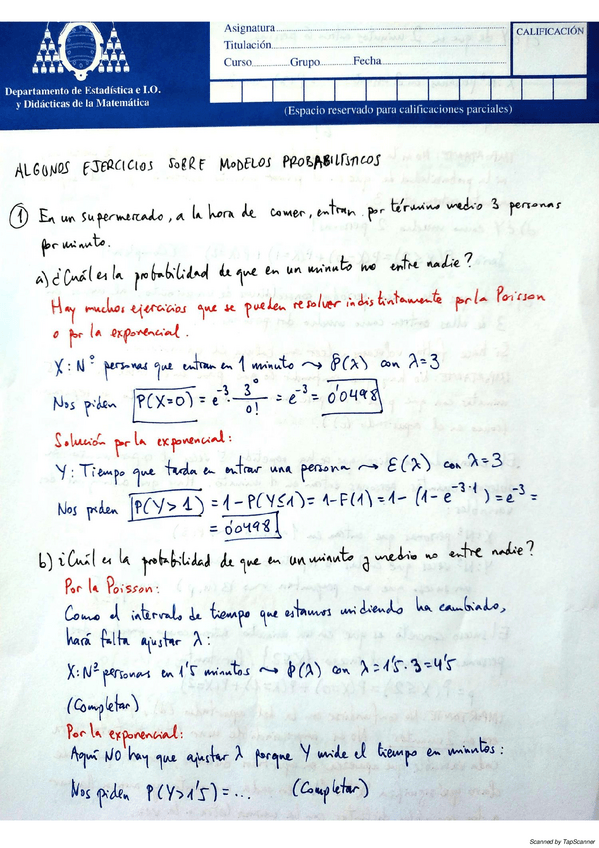 Asignatura
Titulación
Curso Grupo Fecha
CALIFICACIÓN
Departamento de Estadística e I.O.
y Didácticas de la Matemática
(Espacio reservado para calificaciones parciales)
ALGUNOS EJERCICIOS SOBRE MODELOS PROBABILÍSTICOS
① En un supermercado, a la hora de comer, entran por término medio 3 personas
por minuto.
a) ¿Cuál es la probabilidad de que en un minuto no entre nadie?
Hay muchos ejercicios que se pueden resolver indistintamente por la Poisson
o por la exponencial.
X: Nº personas que entran en 1 minuto ⇝ P(λ) con λ=3
Nos piden P(X=0) = e⁻³ · 3⁰/0! = e⁻³ = 0'0498
Solución por la exponencial:
Y: Tiempo que tarda en entrar una persona ⇝ E(λ) con λ=3.
Nos piden P(Y>1) = 1-P(Y≤1) = 1-F(1) = 1-(1-e⁻³·¹) = e⁻³ =
= 0'0498
b) ¿Cuál es la probabilidad de que en un minuto y medio no entre nadie?
Por la Poisson:
Como el intervalo de tiempo que estamos midiendo ha cambiado,
hará falta ajustar λ:
X: Nº personas en 1'5 minutos ⇝ P(λ) con λ=1'5·3=4'5
(Completar)
Por la exponencial:
Aquí NO hay que ajustar λ porque Y mide el tiempo en minutos:
Nos piden P(Y>1'5) = ... (Completar)
Scanned by TapScanner